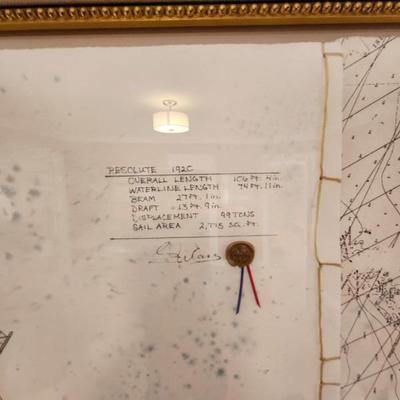 RESOLUTE 1920
OVERALL LENGTH 106 Ft. 4 in.
WATERLINE LENGTH 74 Ft. 11 in.
BEAM 27 Ft. 1 in.
DRAFT 13 Ft. 9 in.
DISPLACEMENT 99 TONS
SAIL AREA 2,775 SQ. Ft.